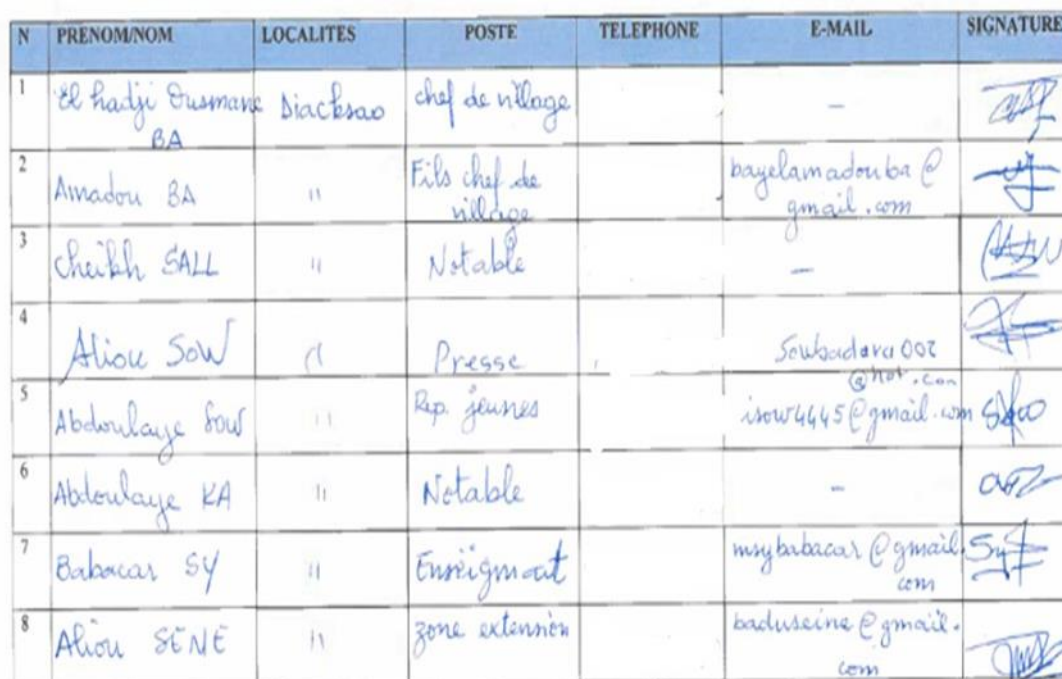 N PRENOM/NOM LOCALITES POSTE TELEPHONE E-MAIL SIGNATURE
1 El hadji Ousmane BA Diacksao chef de village –
2 Amadou BA " Fils chef de village bayelamadouba@gmail.com
3 Cheikh SALL " Notable –
4 Aliou SOW " Presse @hot.com
5 Abdoulaye Sow " Rep. jeunes isow4445@gmail.com
6 Abdoulaye KA " Notable –
7 Babacar SY " Enseignant msybabacar@gmail.com Sy
8 Aliou SENE " zone extension baduseine@gmail.com